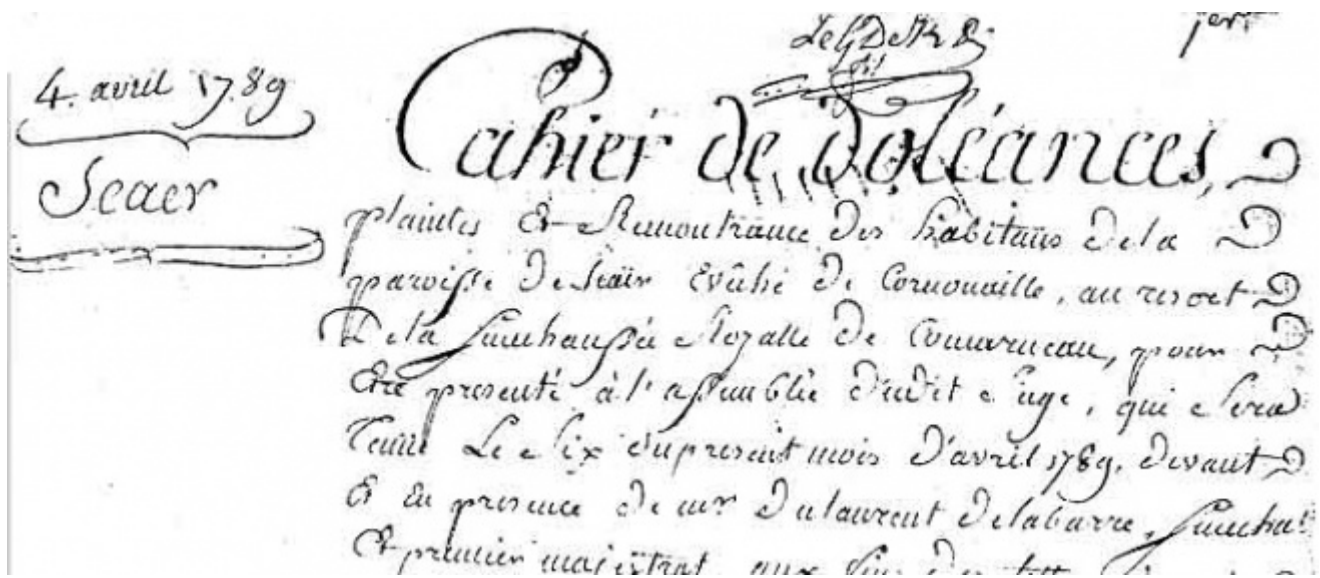 4. avril 1789
Scaer
Cahier de Doléances,
plaintes Et Remontrance des habitans de la
paroisse de Scaër Evêché de Cornouaille, au resort
De la Senechaussée Royalle de Concarneau, pour
Etre presenté à l'assemblée dudit Siege, qui Sera
Tenue Le Six du present mois d'avril 1789. devant
Et En presence de mr dulaurent delabarre, Senechal
Et premier majistrat, aux fins des